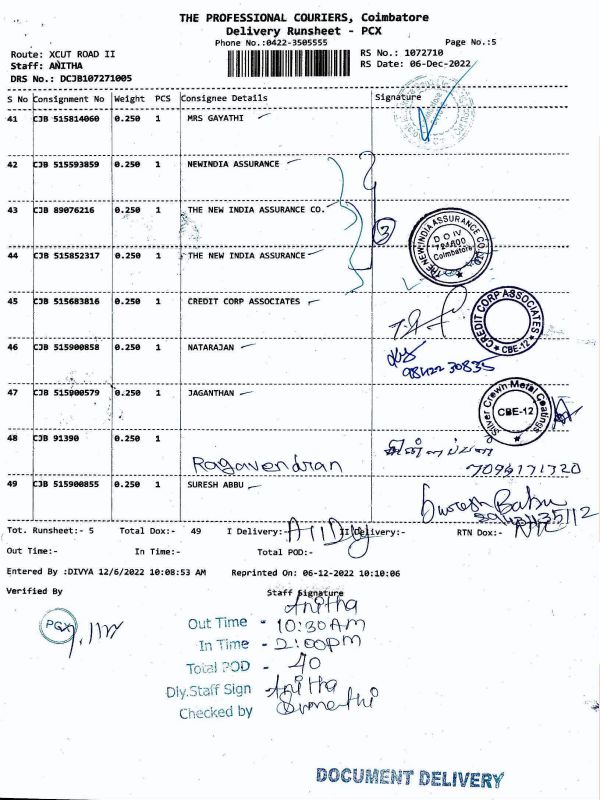 THE PROFESSIONAL COURIERS, Coimbatore
Delivery Runsheet - PCX
Phone No.:0422-3505555 Page No.:5
Route: XCUT ROAD II RS No.: 1072710
Staff: ANITHA RS Date: 06-Dec-2022
DRS No.: DCJB107271005
S No Consignment No Weight PCS Consignee Details Signature
41 CJB 515814060 0.250 1 MRS GAYATHI
42 CJB 515593859 0.250 1 NEWINDIA ASSURANCE
43 CJB 89076216 0.250 1 THE NEW INDIA ASSURANCE CO.
3
THE NEW INDIA ASSURANCE CO. LTD
D O IV
Coimbatore
44 CJB 515852317 0.250 1 THE NEW INDIA ASSURANCE
45 CJB 515683816 0.250 1 CREDIT CORP ASSOCIATES
CREDIT CORP ASSOCIATES
CBE-12
46 CJB 515900858 0.250 1 NATARAJAN
98422 30835
47 CJB 515900579 0.250 1 JAGANTHAN
Silver Crown Metal Coatings
CBE-12
48 CJB 91390 0.250 1
Ragavendran
7094171720
49 CJB 515900855 0.250 1 SURESH ABBU
Suresh Babu
Tot. Runsheet:- 5 Total Dox:- 49 I Delivery:- II Delivery:- RTN Dox:-
Out Time:- In Time:- Total POD:-
Entered By :DIVYA 12/6/2022 10:08:53 AM Reprinted On: 06-12-2022 10:10:06
Verified By Staff Signature
Anitha
PCX
Out Time - 10:30AM
In Time - 2:00pm
Total POD - 40
Dly.Staff Sign Anitha
Checked by Sumathi
DOCUMENT DELIVERY